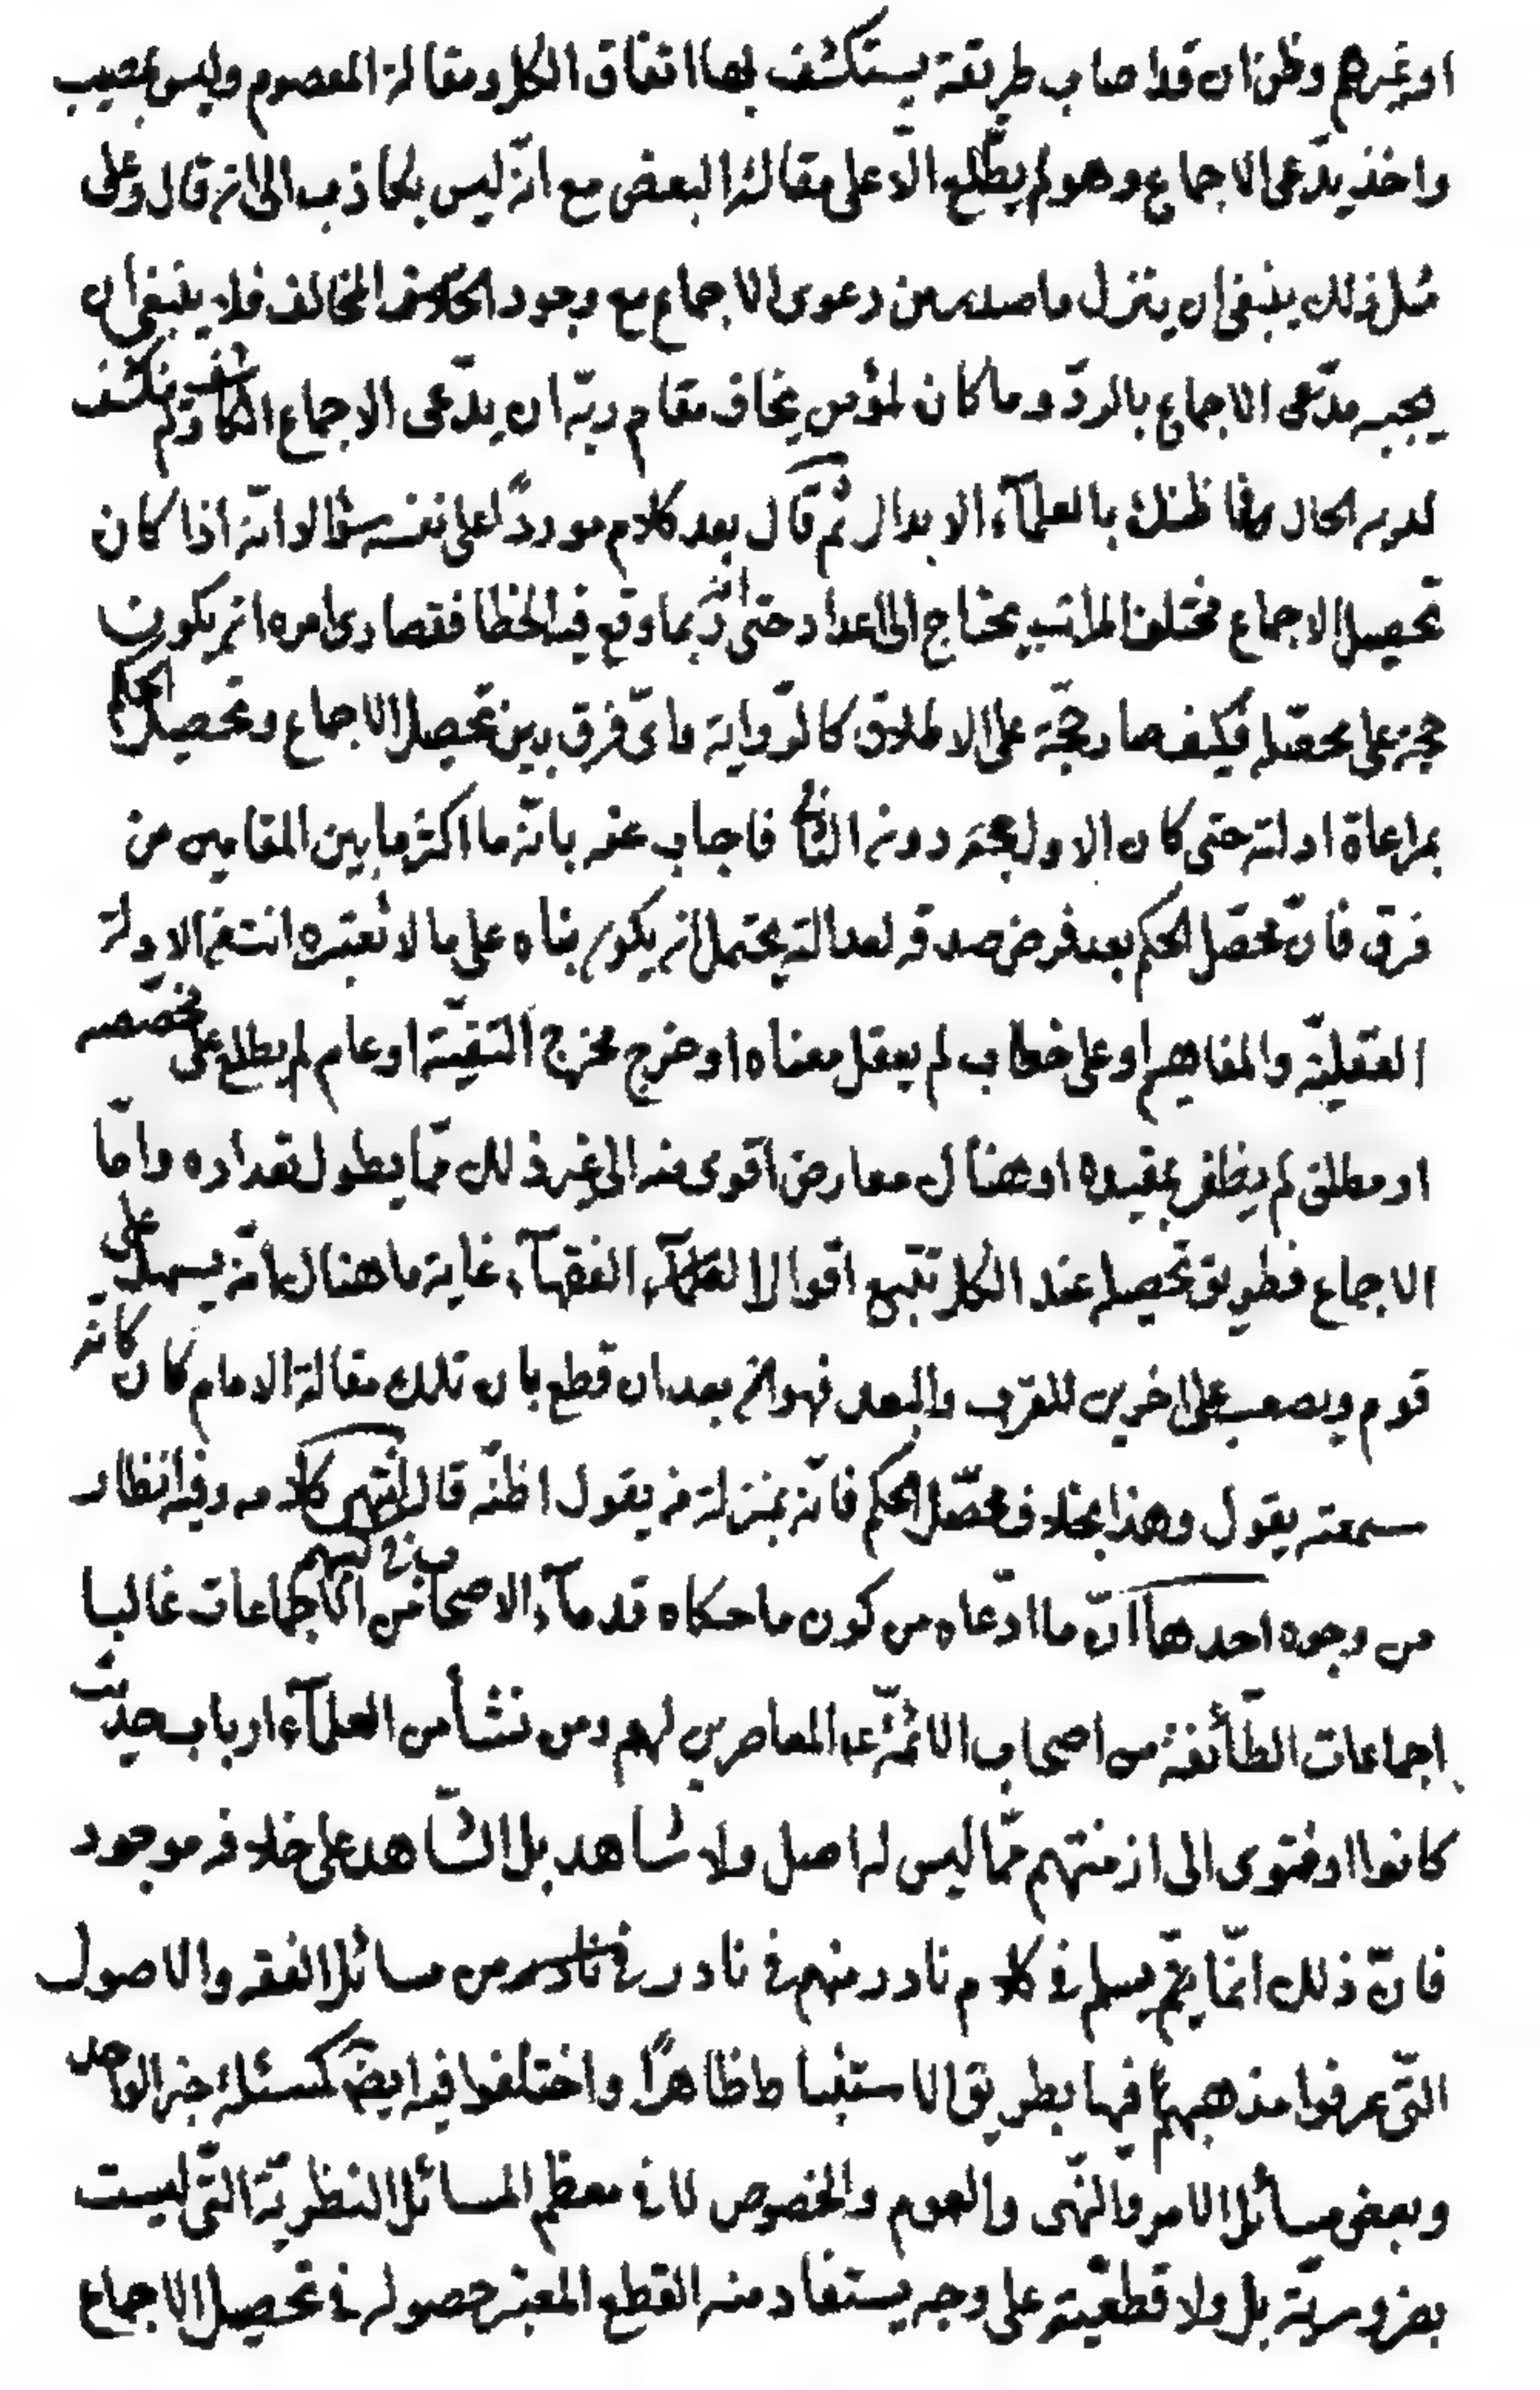 او غيرهم وظن ان قد اصاب طريقة يستكشف بها اتفاق الكل ومقالة المعصوم وليس بمصيب
واخذ يدّعى الاجماع وهو لم يطّلع الّا على مقالة البعض مع انّه ليس بكاذب الى انه قال وعلى
مثل ذلك ينبغى ان يتنزل ما صدر من دعوى الاجماع مع وجود المخالف فلا ينبغى ان
يجبه مدّعى الاجماع بالردّ وما كان لمؤمن يخاف مقام ربّه ان يدّعى الاجماع الكاشف ولم ينكشف
لديه الحال فما ظنك بالعلمآء الابدال ثم قال بعد كلام موردًا على نفسه سؤالا وانّه اذا كان
تحصيل الاجماع مختلف المراتب يحتاج الى اعداد حتى انه ربما وقع فيه الخطا فقصارى امره انه يكون
حجة على محصّله فكيف صار حجّة على الاطلاق كالرّواية واىّ فرق بين تحصيل الاجماع وتحصيل الحكم
بمراعاة ادلته حتى كان الاول حجة دون الثانى فاجاب عنه بانّه ما اكثر ما بين المقامين من
فرق فانّ محصّل الحكم بعد فرض صدقه لعدالته يحتمل انه يكون بناه على ما لا تعتبره انت من الادلة
العقليّة والمفاهيم او على خطاب لم يعقل معناه او خرج مخرج التقيّة او عام لم يطلع على مخصّصه
او مطلق لم يظفر بمقيده او هناك معارض اقوى منه الى غير ذلك ممّا يطول تعداده وامّا
الاجماع فطريق تحصيله عند الكل تتبع اقوال الفقهآء غاية ما هناك انّه يسهل على
قوم ويصعب على اخرين للقرب والبعد فهوانه بعد ان قطع بان تلك مقالة الامام كان كانّه
سمعته يقول وهذا بخلاف محصّل الحكم فانّه بمنزلة من يقول اظنّه قال انتهى كلامه وفيه انظار
من وجوه احدها انّ ما ادّعاه من كون ما حكاه قدمآء الاصحاب فى كتبهم من الاجماعات غالبا
اجماعات الطّائفة من اصحاب الائمّة ع المعاصرين لهم ومن نشأ من العلمآء ارباب حديث
كانوا او فتوى الى ازمنتهم ممّا ليس له اصل ولا شاهد بل الشّاهد على خلافه موجود
فانّ ذلك انّما يتم مسلم فى كلام نادر منهم فى نادر من مسائل الفقه والاصول
التّى عرفوا مذهبهم فيها بطريق الاستنباط ظاهرًا واختلفوا فيه ايضً كمسئلة خبر الواحد
وبعض مسائل الامر والنّهى والعموم والخصوص لا فى معظم المسائل النظريّة التّى ليست
بضروريّة بل ولا قطعيّة على وجه يستفاد منه القطع المعتبر حصوله فى تحصيل الاجماع